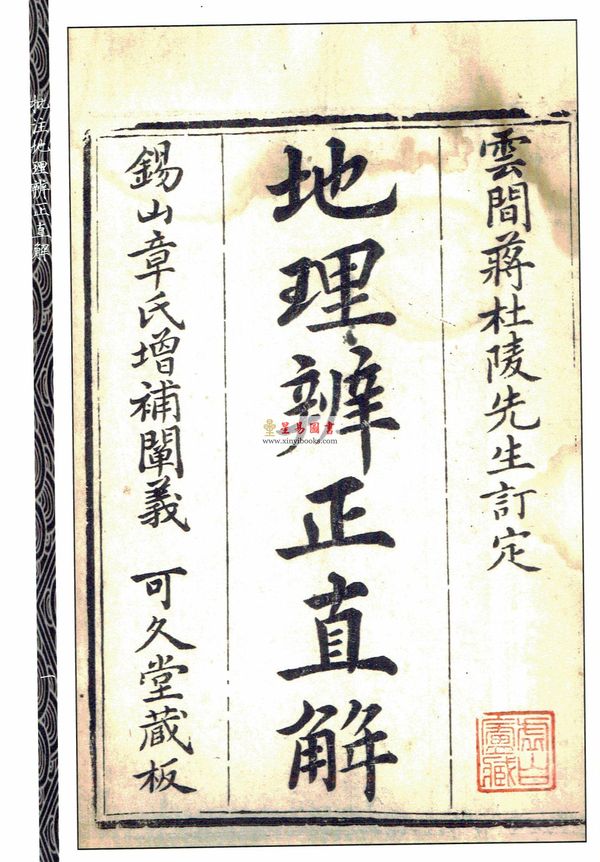 雲間蔣杜陵先生訂定
地理辨正直解
錫山章氏增補闡義 可久堂藏板
虛白廬藏
批注地理辨正直解
一
星易圖書
www.xinyibooks.com